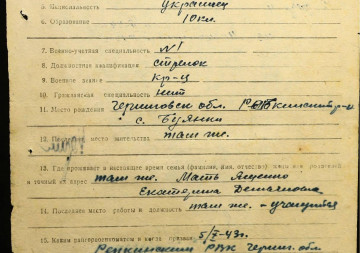 5. Национальность украинец
6. Образование 10 кл.
7. Военно-учетная специальность №1
8. Должностная квалификация стрелок
9. Военное звание кр-ц
10. Гражданская специальность нит
11. Место рождения Черниговск. обл. р-н
с. Буянки
12. место жительства там же.
13. Где проживает в настоящее время семья (фамилия, имя, отчество) жены или родителей
и точный их адрес там же. Мать Яценко
Екатерина Демьяновна
14. Последнее место работы и должность там же. - учащийся
15. Каким райвоенкоматом и когда призван 5/X-43г.
Репкинским РВК Черниг. обл.